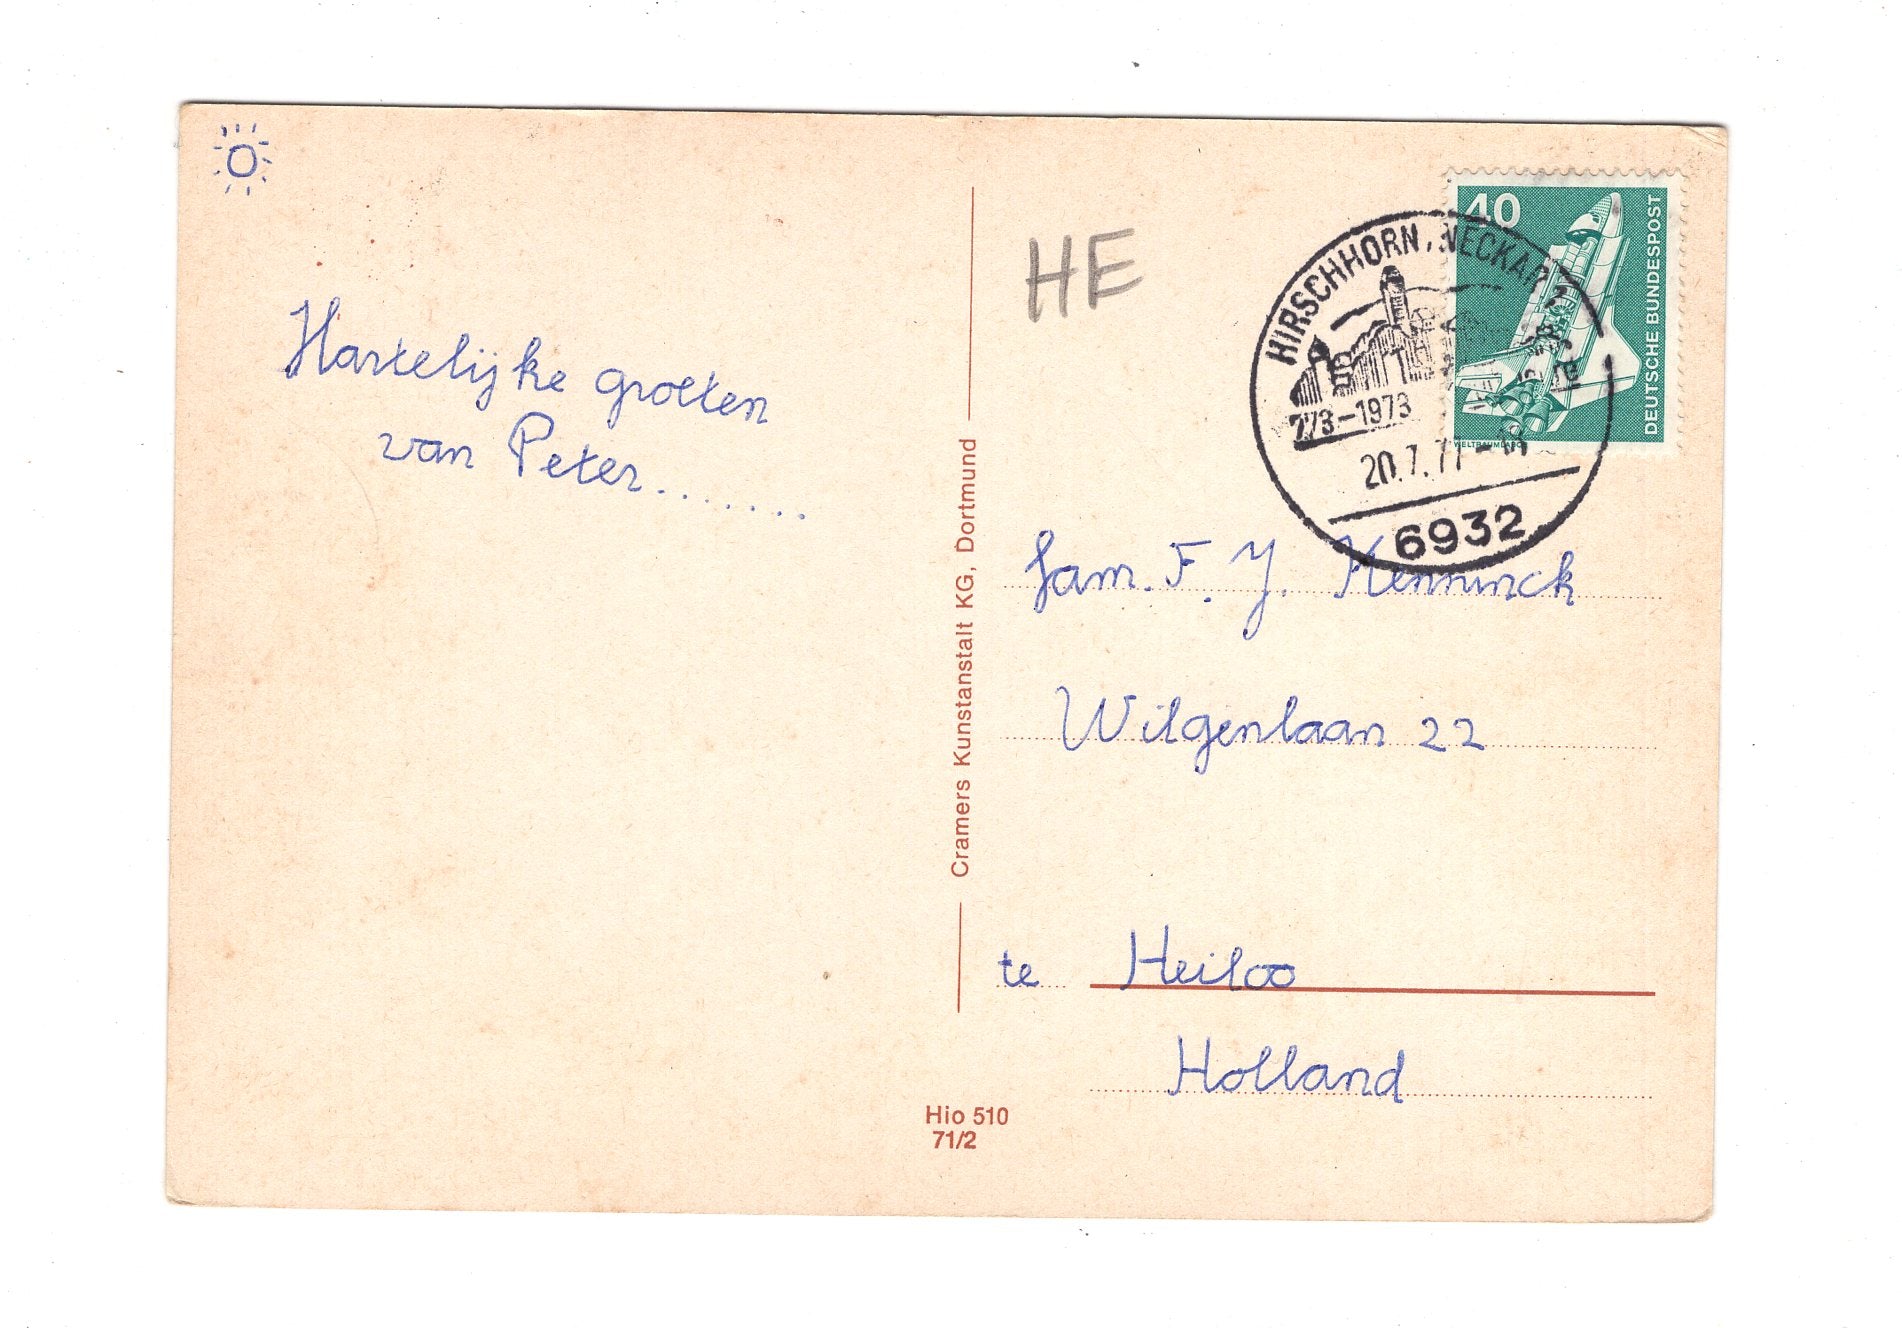 Hartelijke groeten
van Peter.......
Cramers Kunstanstalt KG, Dortmund
Hio 510
71/2
HE
40
DEUTSCHE BUNDESPOST
WELTRAUMLABOR
HIRSCHHORN, NECKAR
773-1973
20.7.77
6932
fam. F. J. Henninck
Wilgenlaan 22
te Heiloo
Holland